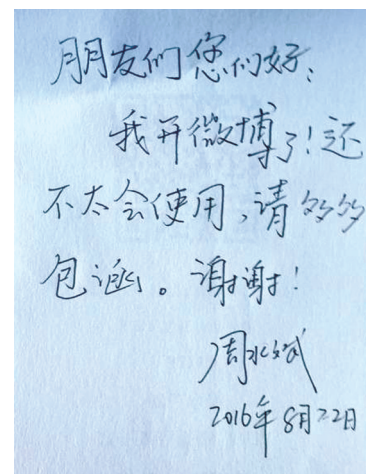 朋友们您们好:
我开微博了!还
不太会使用,请多多
包涵。谢谢!
周
2016年8月22日